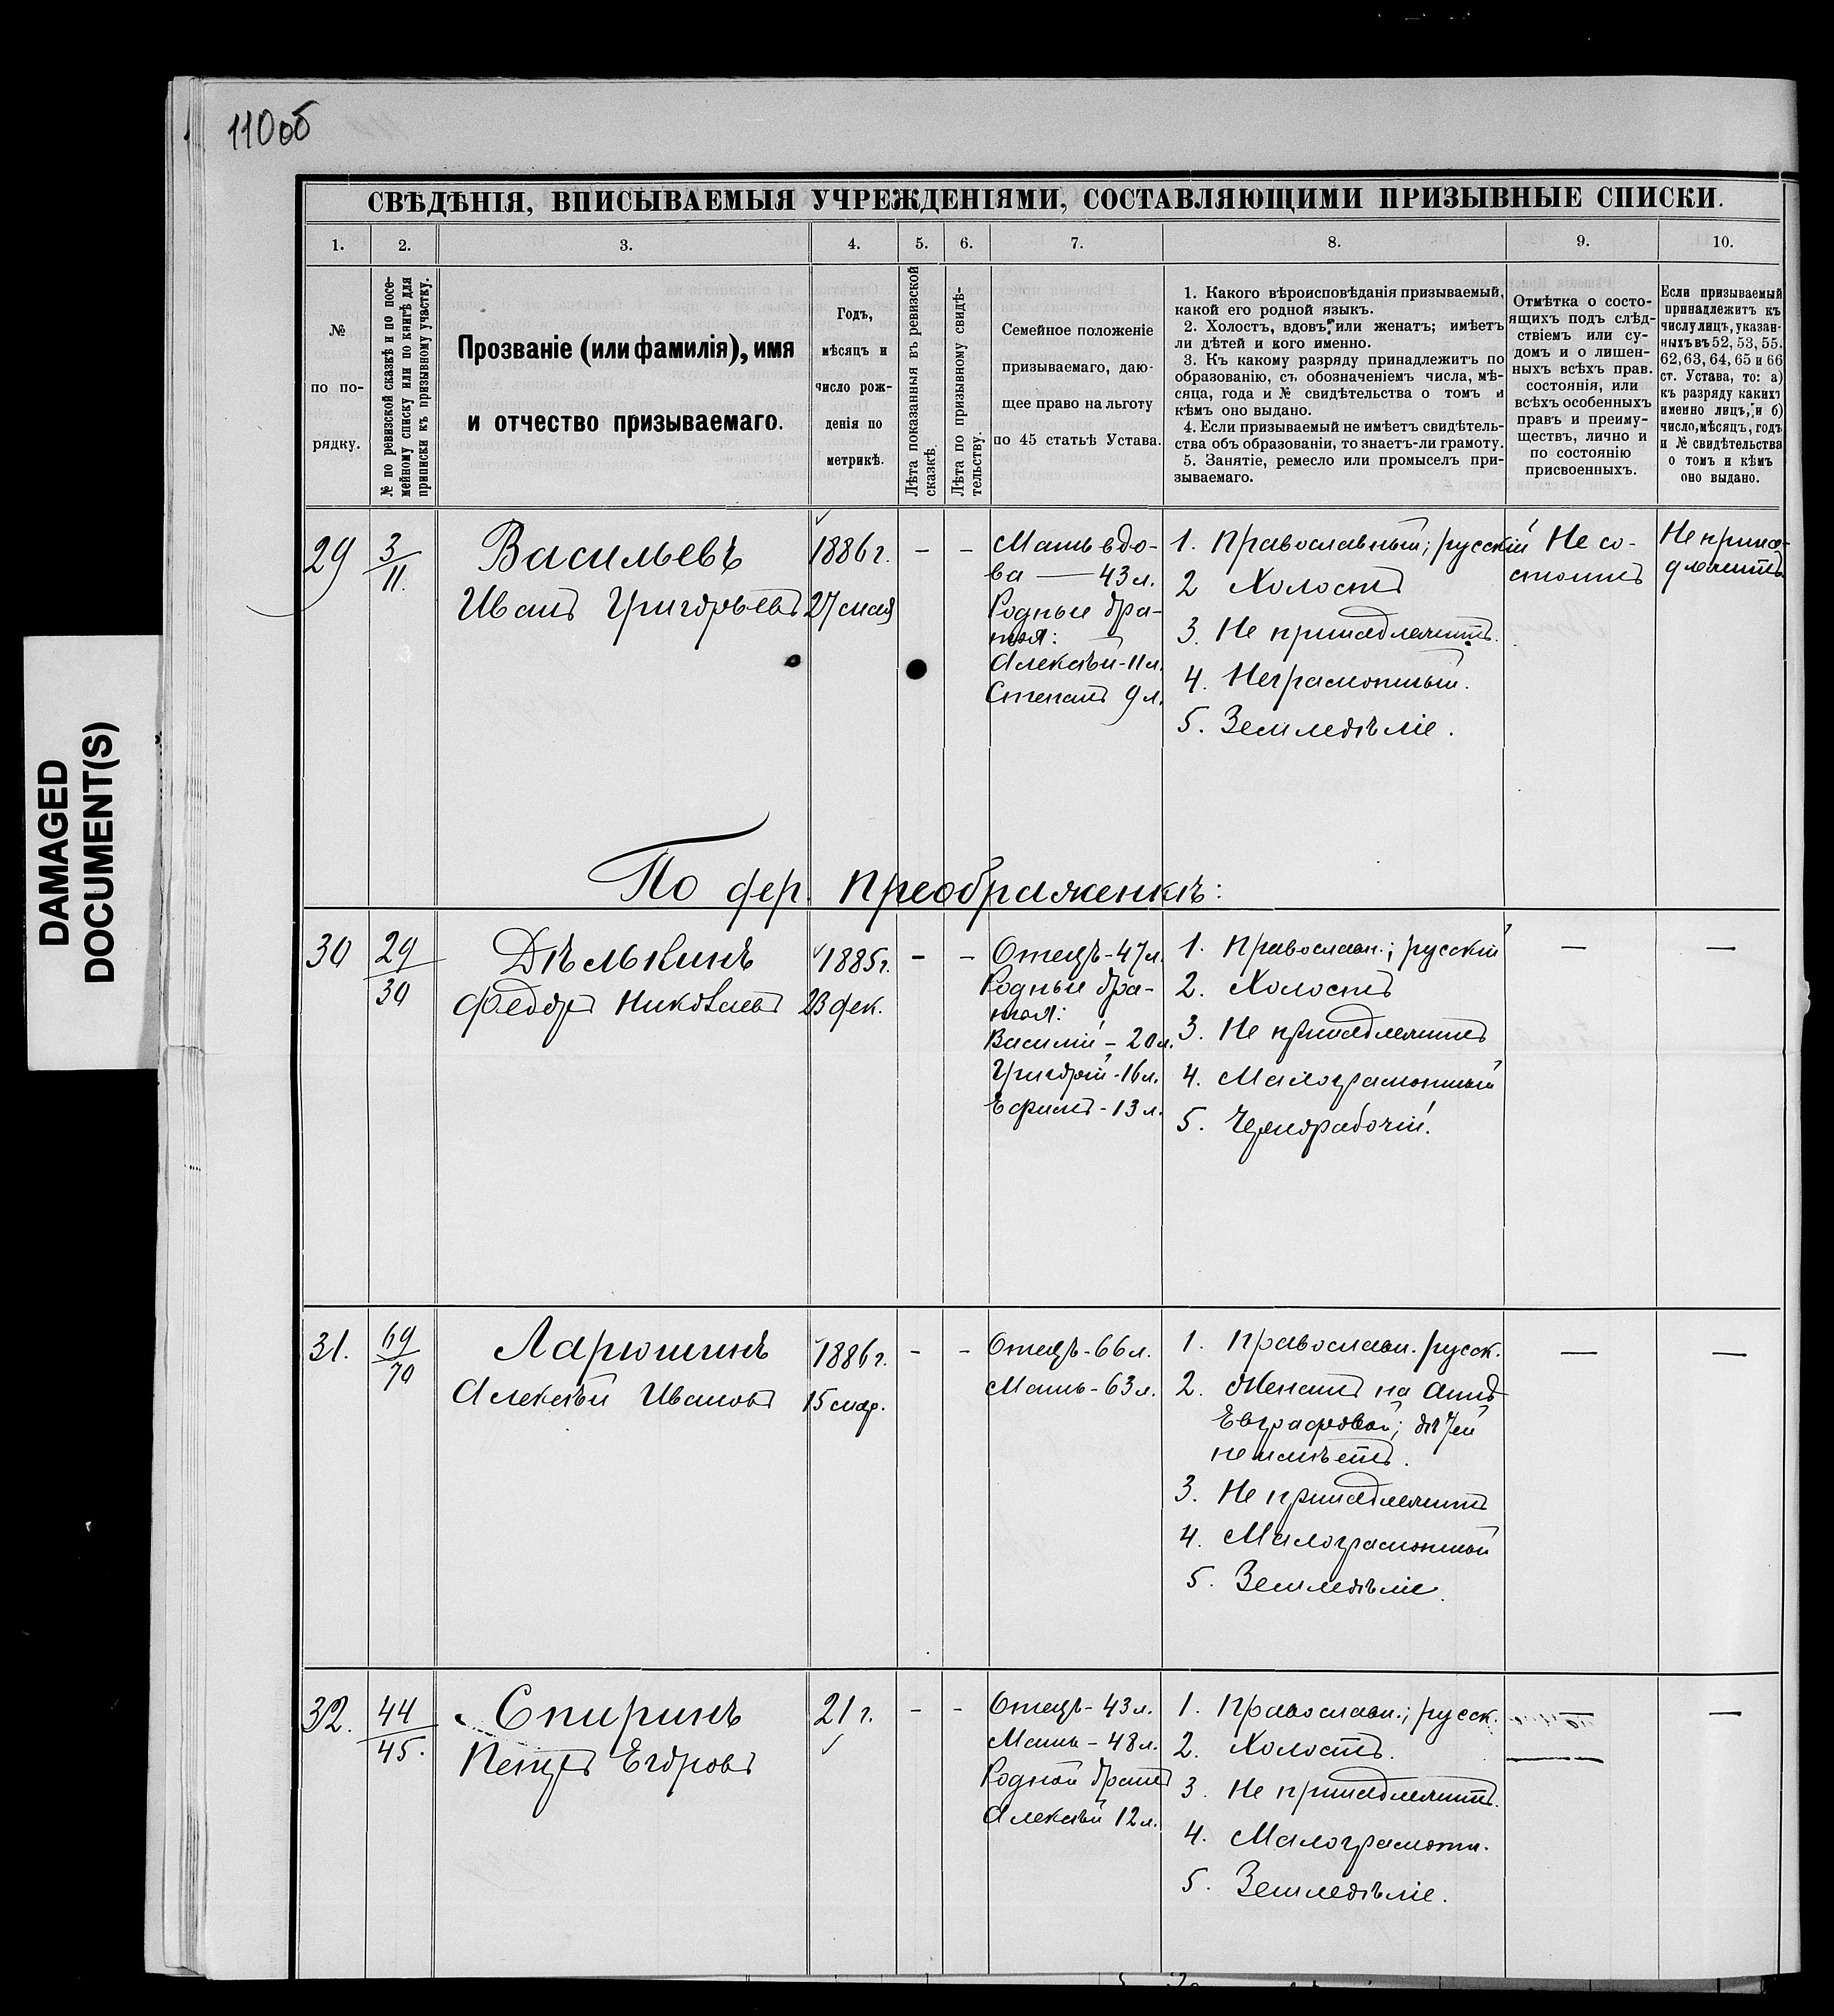 110об
DAMAGED
DOCUMENT(S)
СВѢДѢНІЯ, ВПИСЫВАЕМЫЯ УЧРЕЖДЕНІЯМИ, СОСТАВЛЯЮЩИМИ ПРИЗЫВНЫЕ СПИСКИ.
1.
2.
3.
4.
5.
6.
7.
8.
9.
10.
№
по по-
рядку.
№ по ревизской сказкѣ и по посе-
мейному списку или по книгѣ для
приписки къ призывному участку.
Прозваніе (или фамилія), имя
и отчество призываемаго.
Годъ,
мѣсяцъ и
число рож-
денія по
метрикѣ.
Лѣта показанныя въ ревизской
сказкѣ.
Лѣта по призывному свидѣ-
тельству.
Семейное положеніе
призываемаго, даю-
щее право на льготу
по 45 статьѣ Устава.
1. Какого вѣроисповѣданія призываемый,
какой его родной языкъ.
2. Холостъ, вдовъ, или женатъ; имѣетъ
ли дѣтей и кого именно.
3. Къ какому разряду принадлежитъ по
образованію, съ обозначеніемъ числа, мѣ-
сяца, года и № свидѣтельства о томъ и
кѣмъ оно выдано.
4. Если призываемый не имѣетъ свидѣтель-
ства объ образованіи, то знаетъ-ли грамоту.
5. Занятіе, ремесло или промыселъ при-
зываемаго.
Отмѣтка о состо-
ящихъ подъ слѣд-
ствіемъ или су-
домъ и о лишен-
ныхъ всѣхъ прав.
состоянія, или
всѣхъ особенныхъ
правъ и преиму-
ществъ, лично и
по состоянію
присвоенныхъ.
Если призываемый
принадлежитъ къ
числу лицъ, указан-
ныхъ въ 52, 53, 55.
62, 63, 64, 65 и 66
ст. Устава, то: а)
къ разряду какихъ
именно лицъ, и б)
число, мѣсяцъ, годъ
и № свидѣтельства
о томъ и кѣмъ
оно выдано.
29
3
11.
Васильевъ
Иванъ Григорьевъ
1886 г.
27 мая
-
-
Мать вдо-
ва — 43 л.
Родные бра-
тья:
Алексѣй - 11 л.
Степанъ 9 л.
1. Православный; русскій
2 Холостъ
3. Не принадлежитъ.
4. Неграмотный.
5. Земледѣліе.
Не со-
стоитъ
Не прина-
длежитъ
По дер. Преображенкѣ:
30
29
30
Дѣлькинъ
Федоръ Николаевъ
1885 г.
23 дек.
-
-
Отецъ - 47 л.
Родные бра-
тья:
Василій - 20 л.
Григорій - 16 л.
Ефимъ - 13 л.
1. Православн.; русскій
2. Холостъ
3. Не принадлежитъ
4. Малограмотный
5. Чернорабочій.
—
—
31.
69
70
Ларюшинъ
Алексѣй Ивановъ
1886 г.
15 мар.
-
-
Отецъ - 66 л.
Мать - 63 л.
1. Православн. русск.
2. Женатъ на Аннѣ
Евграфовой; дѣтей
не имѣетъ.
3. Не принадлежитъ
4. Малограмотный
5. Земледѣліе.
—
—
32.
44
45.
Спиринъ
Петръ Егоровъ
21 г.
-
-
Отецъ - 43 л.
Мать - 48 л.
Родной братъ
Алексѣй 12 л.
1. Православн.; русск.
2. Холостъ.
3. Не принадлежитъ.
4. Малограмотн.
5. Земледѣліе.
—
—